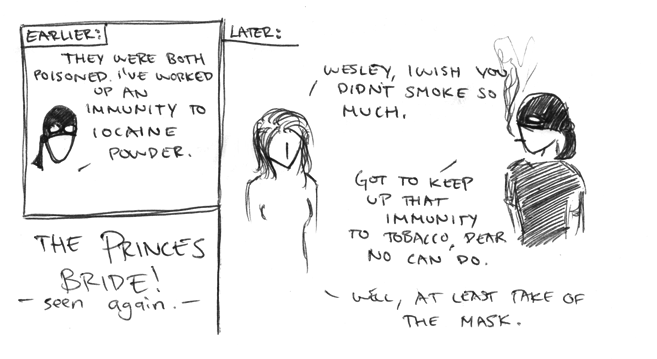 EARLIER:
THEY WERE BOTH
POISONED. I'VE WORKED
UP AN
IMMUNITY TO
IOCAINE
POWDER.
THE PRINCES
BRIDE!
- seen again. -
LATER:
WESLEY, I WISH YOU
DIDN'T SMOKE SO
MUCH.
GOT TO KEEP
UP THAT
IMMUNITY
TO TOBACCO, DEAR
NO CAN DO.
- WELL, AT LEAST TAKE OF
THE MASK.